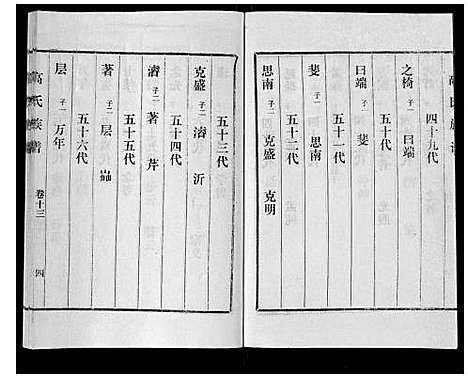 四十九代
之椅 子一 曰端
五十代
曰端 子一 斐
五十一代
斐 子一 思南
五十二代
思南 子二 克盛 克明
五十三代
克盛 子二 濬 沂
五十四代
濬 子二 著 芹
五十五代
著 子二 层 巋
五十六代
层 子一 万年
高氏族谱 卷十三 四